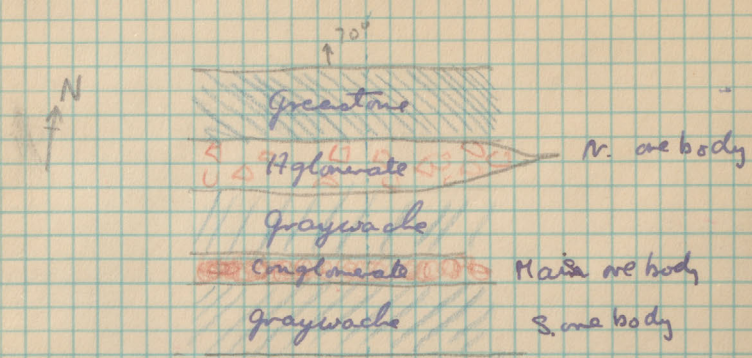 70°
N
Greenstone
Aglomerate N. ore body
Graywacke
Conglomerate Main ore body
Graywacke S. ore body